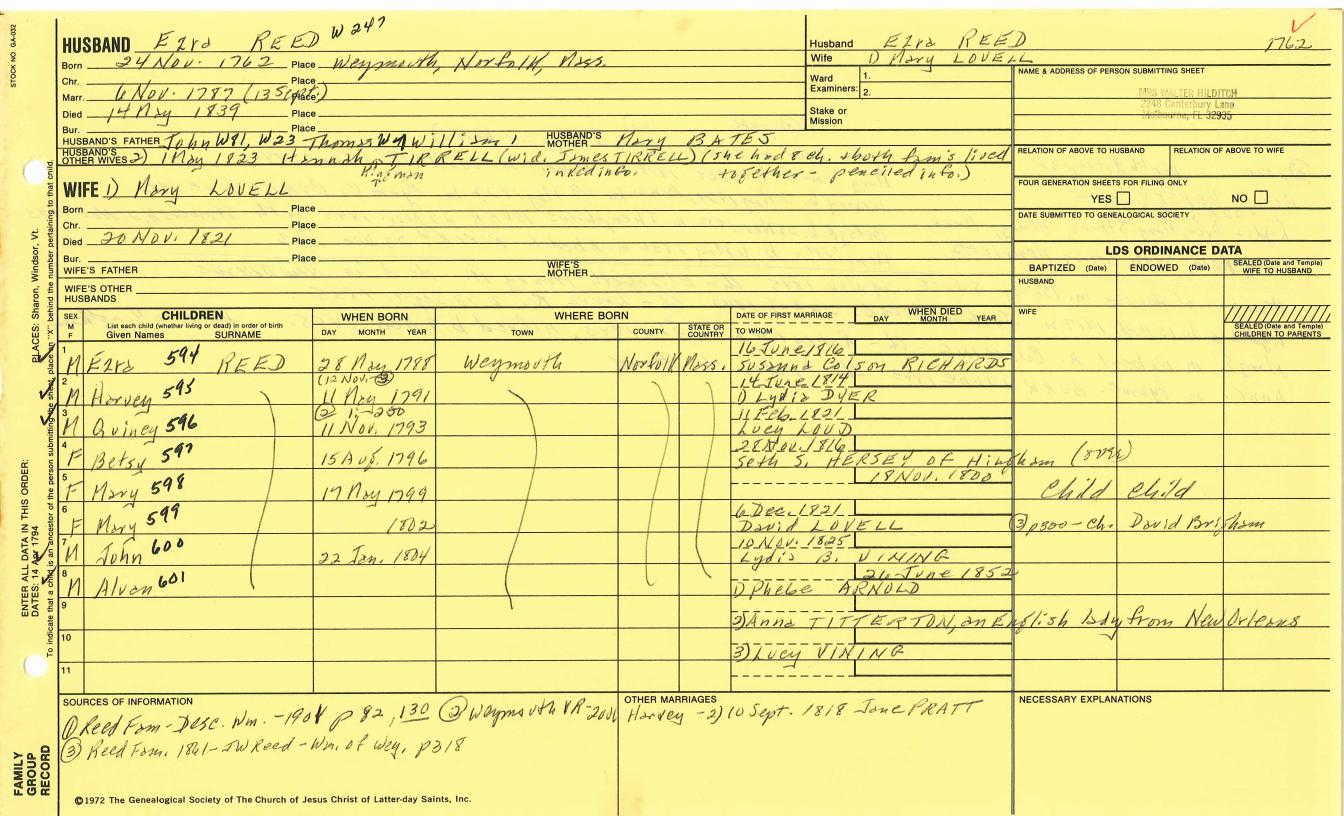 STOCK NO. GA-032
HUSBAND Ezra REED W 247
Born 24 Nov. 1762 Place Weymouth, Norfolk, Mass.
Chr. Place
Marr. 6 Nov. 1787 (13 Sept.) Place
Died 14 May 1839 Place
Bur. Place
HUSBAND'S FATHER John W81, W23 Thomas W7 William 1 HUSBAND'S MOTHER Mary BATES
HUSBAND'S OTHER WIVES 2) 1 May 1823 Hannah TIRRELL (wid. James TIRRELL) (she had 8 ch. & both fam's lived
inked info. together - penciled info.)
WIFE 1) Mary LOVELL
Born Place
Chr. Place
Died 20 Nov. 1821 Place
Bur. Place
WIFE'S FATHER WIFE'S MOTHER
WIFE'S OTHER HUSBANDS
Husband Ezra REED 1762
Wife 1) Mary LOVELL
Ward Examiners: 1.
2.
Stake or Mission
NAME & ADDRESS OF PERSON SUBMITTING SHEET
MRS WALTER HILDITCH
2248 Canterbury Lane
Melbourne, FL 32935
RELATION OF ABOVE TO HUSBAND RELATION OF ABOVE TO WIFE
FOUR GENERATION SHEETS FOR FILING ONLY
YES NO
DATE SUBMITTED TO GENEALOGICAL SOCIETY
LDS ORDINANCE DATA
BAPTIZED (Date) ENDOWED (Date) SEALED (Date and Temple) WIFE TO HUSBAND
HUSBAND
WIFE
SEALED (Date and Temple) CHILDREN TO PARENTS
SEX M F CHILDREN WHEN BORN WHERE BORN DATE OF FIRST MARRIAGE WHEN DIED
List each child (whether living or dead) in order of birth
Given Names SURNAME DAY MONTH YEAR TOWN COUNTY STATE OR COUNTRY TO WHOM DAY MONTH YEAR
16 June 1816
1 M Ezra 594 REED 28 May 1788 Weymouth Norfolk Mass. Susanna Colson RICHARDS
(12 Nov. - 2) 14 June 1814
2 M Harvey 595 11 May 1791 1) Lydia DYER
2 1:-250 11 Feb. 1821
3 M Quincy 596 11 Nov. 1793 Lucy LOUD
28 Nov. 1816
4 F Betsy 597 15 Aug. 1796 Seth S. HERSEY of Hingham (over)
18 Nov. 1800
5 F Mary 598 17 May 1799 Child Child
6 Dec. 1821
6 F Mary 599 1802 David LOVELL 3 p300 - Ch. David Brigham
10 Nov. 1825
7 M John 600 22 Jan. 1804 Lydia B. VINING
26 June 1852
8 M Alvan 601 1) Phebe ARNOLD
9 2) Anna TITTERTON, an English lady from New Orleans
10 3) Lucy VINING
11
SOURCES OF INFORMATION
1 Reed Fam - Desc. Wm. - 1901 p 82, 130 2 Weymouth VR-
3 Reed Fam. 1861 - JW Reed - Wm. of Wey, p318
OTHER MARRIAGES
Harvey - 2) 10 Sept. 1818 Jane PRATT
NECESSARY EXPLANATIONS
©1972 The Genealogical Society of The Church of Jesus Christ of Latter-day Saints, Inc.
FAMILY GROUP RECORD
ENTER ALL DATA IN THIS ORDER:
DATES: 14 Apr 1794
PLACES: Sharon, Windsor, Vt.
To indicate that a child is an ancestor of the person submitting the sheet, place an "X" behind the number pertaining to that child.